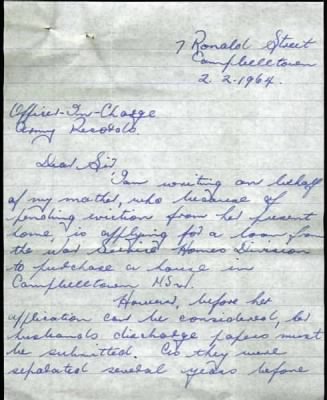 7 Ronald Street
Campbelltown
2.2.1964.
Officer-In-Charge
Army Records.
Dear Sir
I am writing on behalf
of my mother, who because of
pending eviction from her present
home is applying for a loan from
the War Service Homes Division
to purchase a house in
Campbelltown N.S.W.
However, before her
application can be considered, her
husbands discharge papers must
be submitted. As they were
separated several years before